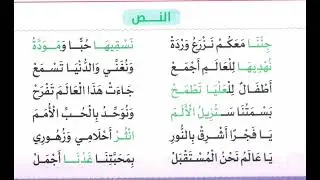 النـــص
جِئْنَا مَعَكُمْ نَزْرَعُ وَرْدَةً نَسْقِيهَا حُبًّا وَمَوَدَّةً
نُهْدِيهَا لِلْعَالَمِ أَجْمَعْ وَنُغَنِّي وَالدُّنْيَا تَسْمَعْ
أَطْفَالٌ لِلْعَلْيَا تَطْمَحْ جَاءَتْ هَذَا الْعَالَمَ تَفْرَحْ
بَسْمَتُنَا سَتُزِيلُ الْأَلَمَ وَنُوَحِّدُ بِالْحُبِّ الْأُمَمَ
يَا فَجْرًا أَشْرِقْ بِالنُّورِ انْثُرْ أَحْلَامِي وَزُهُورِي
يَا عَالَمُ نَحْنُ الْمُسْتَقْبَلْ بِمَحَبَّتِنَا غَدُنَا أَجْمَلْ